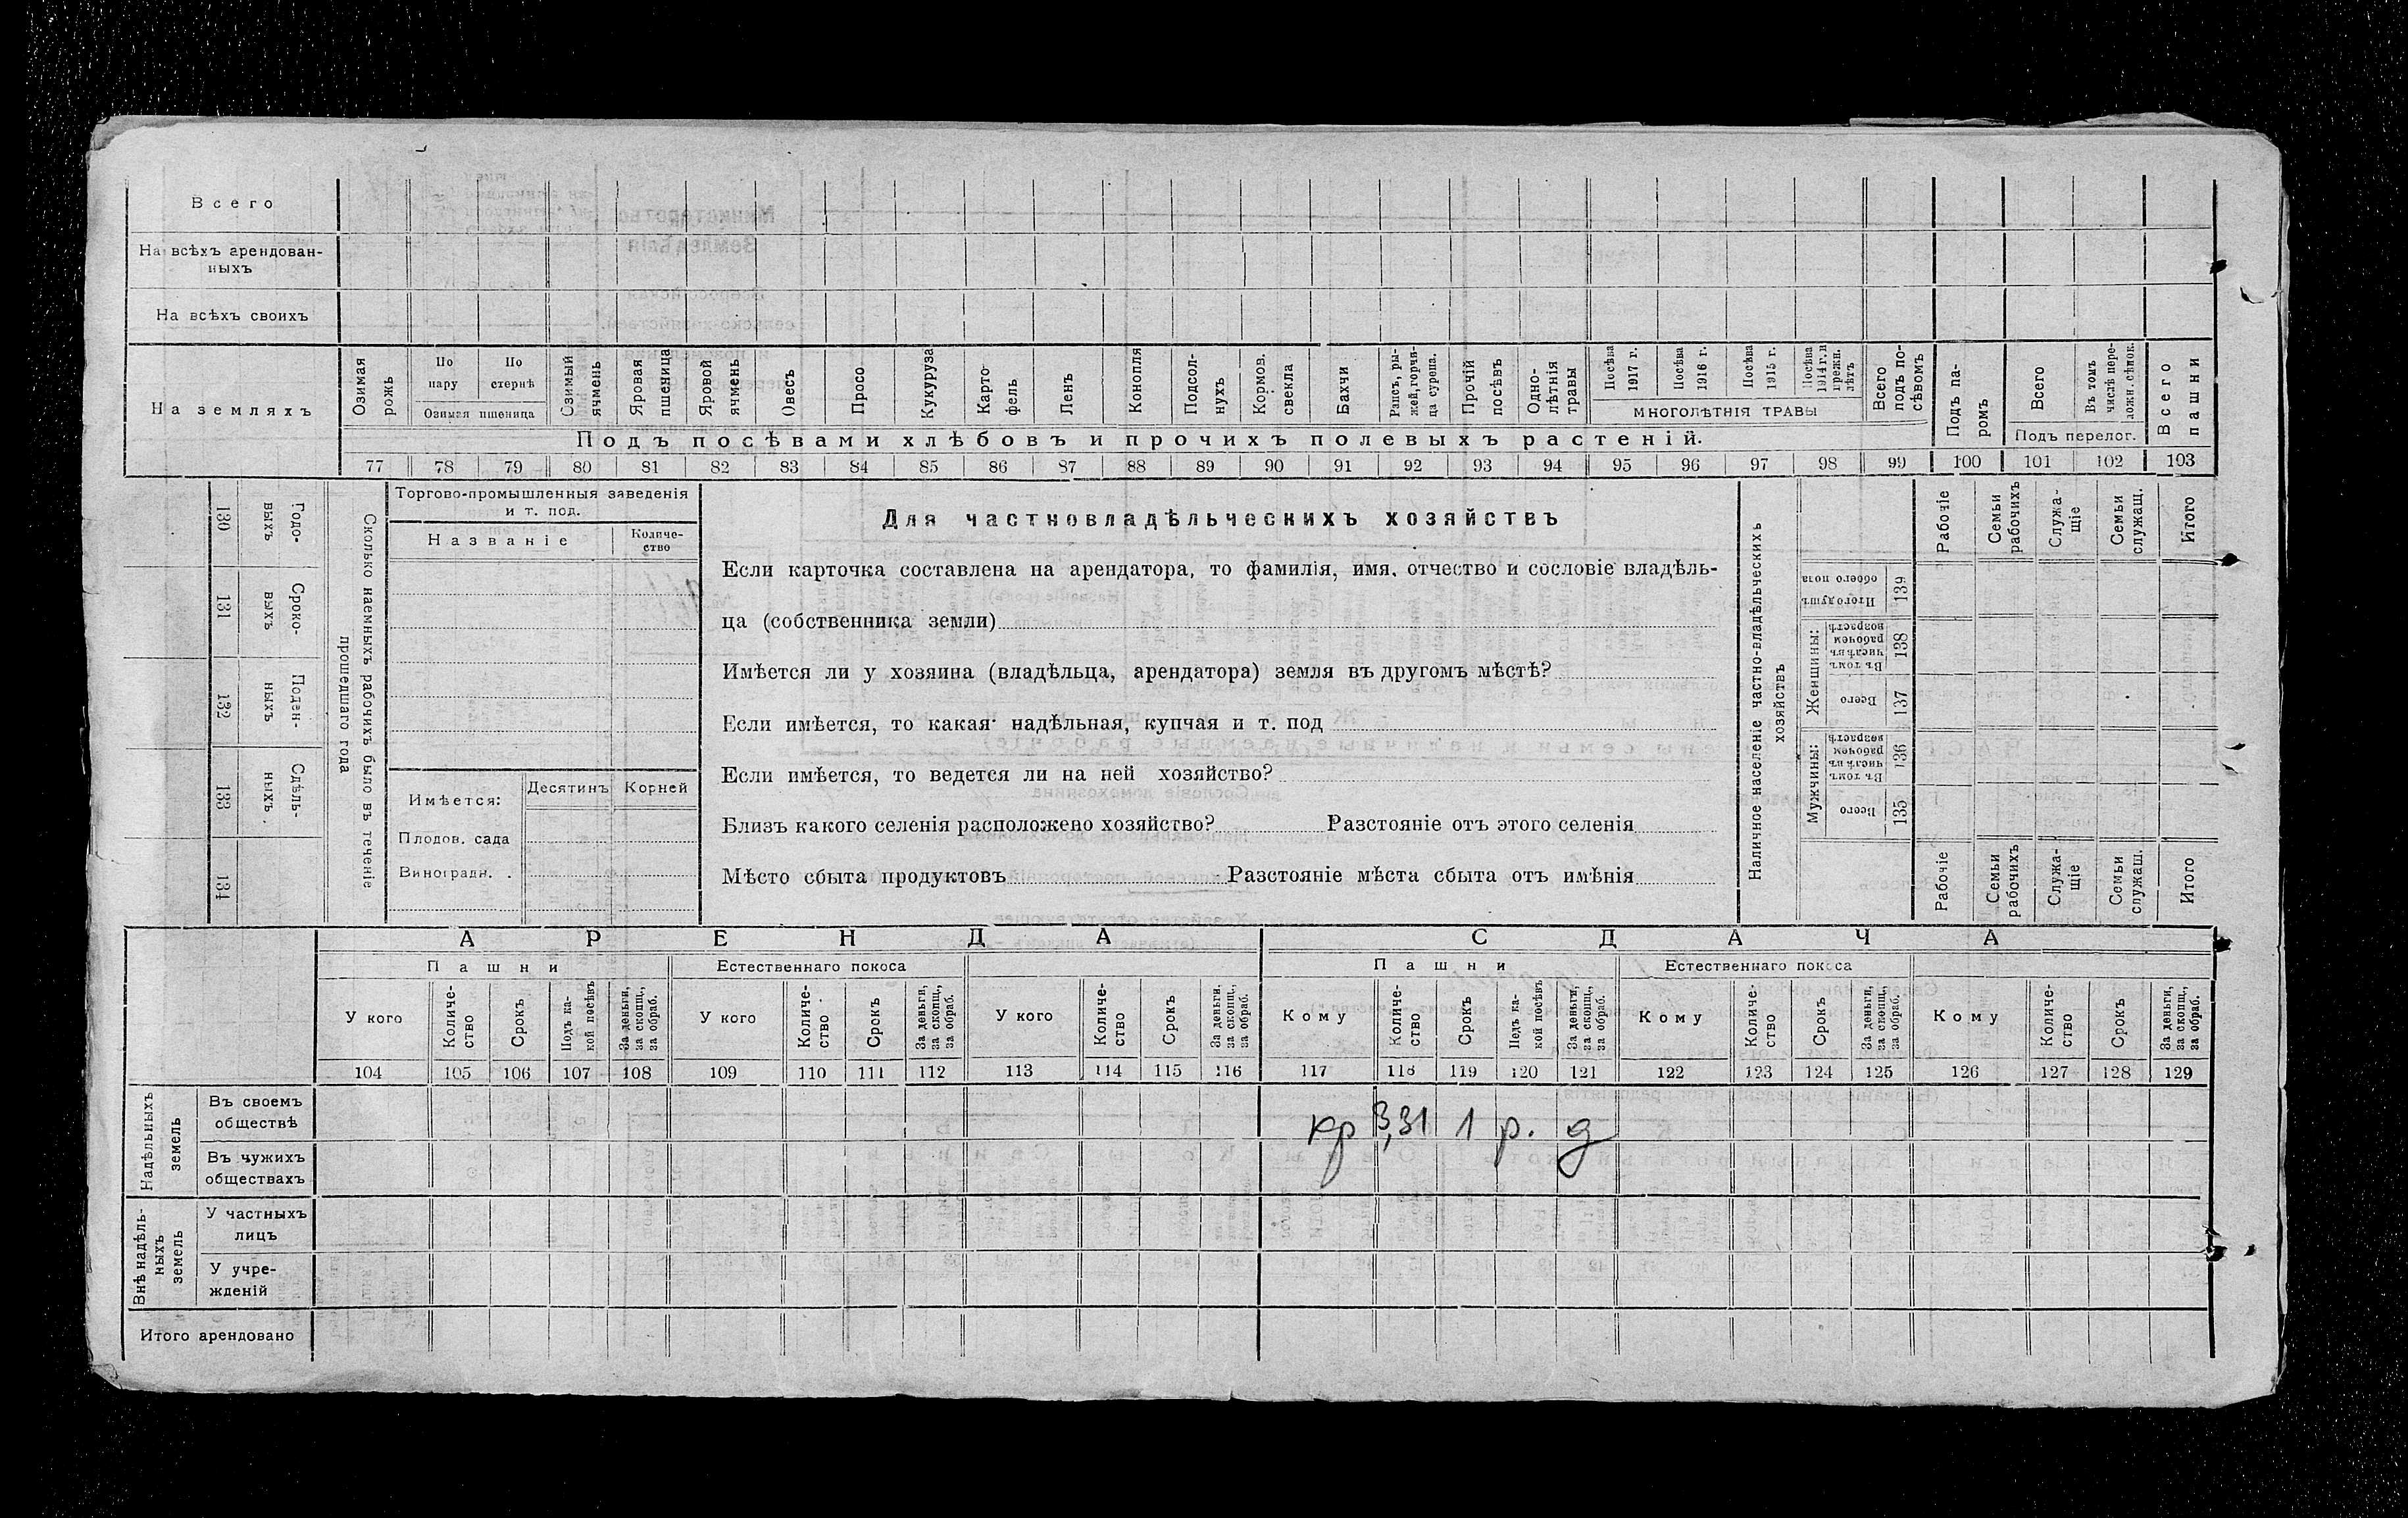 Всего
На всѣхъ арендован-
ныхъ
На всѣхъ своихъ
На земляхъ
Озимая рожь
По пару
По стернѣ
Озимая пшеница
Озимый ячмень
Яровая пшеница
Яровой ячмень
Овесъ
Просо
Кукуруза
Карто-
фель
Ленъ
Конопля
Подсол-
нухъ
Кормов. свекла
Бахчи
Рапсъ, ры-
жей, горчи-
ца сурепа.
Прочій посѣвъ
Одно-
лѣтнія травы
Посѣва 1917 г.
Посѣва 1916 г.
Посѣва 1915 г.
Посѣва 1914 г. и прежн. лѣтъ
МНОГОЛѢТНІЯ ТРАВЫ
Всего подъ по-
сѣвомъ
Подъ па-
ромъ
Всего
Въ томъ числѣ пере-
ложн. сѣнок.
Подъ перелог.
Всего пашни
Подъ посѣвами хлѣбовъ и прочихъ полевыхъ растеній.
77 78 79 80 81 82 83 84 85 86 87 88 89 90 91 92 93 94 95 96 97 98 99 100 101 102 103
130 Годо-
выхъ
131 Сроко-
выхъ
132 Поден-
ныхъ
133 Сдѣль-
ныхъ.
134
Сколько наемныхъ рабочихъ было въ теченіе
прошедшаго года
Торгово-промышленныя заведенія
и т. под.
Названіе
Количе-
ство
Имѣется:
Десятинъ
Корней
Плодов. сада
Виноградн. .
Для частновладѣльческихъ хозяйствъ
Если карточка составлена на арендатора, то фамилія, имя, отчество и сословіе владѣль-
ца (собственника земли)
Имѣется ли у хозяина (владѣльца, арендатора) земля въ другомъ мѣстѣ?
Если имѣется, то какая: надѣльная, купчая и т. под
Если имѣется, то ведется ли на ней хозяйство?
Близъ какого селенія расположено хозяйство? Разстояніе отъ этого селенія
Мѣсто сбыта продуктовъ Разстояніе мѣста сбыта отъ имѣнія
Наличное населеніе частно-владѣльческихъ
хозяйствъ
Рабочіе
Семьи рабочихъ
Служа-
щіе
Семьи служащ.
Итого
Итого душъ обоего пола 139
Женщины:
Въ томъ числѣ въ рабочем возрастѣ 138
Всего 137
Мужчины:
Въ томъ числѣ въ рабочем возрастѣ 136
Всего 135
Рабочіе
Семьи рабочихъ
Служа-
щіе
Семьи служащ.
Итого
АРЕНДА
СДАЧА
Пашни
Естественнаго покоса
Пашни
Естественнаго покоса
У кого
Количе-
ство
Срокъ
Подъ ка-
кой посѣвъ
За деньги, за скопщ., за обраб.
У кого
Количе-
ство
Срокъ
За деньги, за скопщ., за обраб.
У кого
Количе-
ство
Срокъ
За деньги, за скопщ., за обраб.
Кому
Количе-
ство
Срокъ
Подъ ка-
кой посѣвъ
За деньги, за скопщ., за обраб.
Кому
Количе-
ство
Срокъ
За деньги, за скопщ., за обраб.
Кому
Количе-
ство
Срокъ
За деньги, за скопщ., за обраб.
104 105 106 107 108 109 110 111 112 113 114 115 116 117 118 119 120 121 122 123 124 125 126 127 128 129
Надѣльныхъ земель
Въ своемъ
обществѣ
кр 3,31 1 р. д
Въ чужихъ
обществахъ
Внѣ надѣль-
ныхъ земель
У частныхъ
лицъ
У учре-
жденій
Итого арендовано